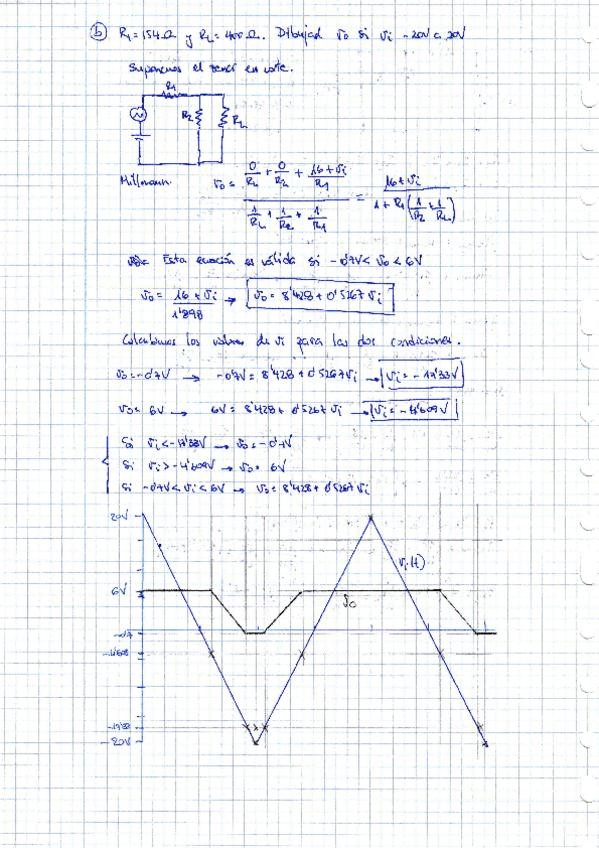 b) R1 = 154 Ω y RL = 400 Ω. Dibujad vo si vi -20V a 20V
Suponemos el zener en corte.
R1
R2
RL
Millmann. vo = (0/RL + 0/R2 + (16 + vi)/R1) / (1/RL + 1/R2 + 1/R1) = (16 + vi) / (1 + R1 (1/R2 + 1/RL))
Esta ecuación es válida si -0'7V < vo < 6V
vo = (16 + vi) / 1'898 → vo = 8'428 + 0'5267 vi
Calculamos los valores de vi para las dos condiciones.
vo = -0'7V → -0'7V = 8'428 + 0'5267 vi → vi = -17'33V
vo = 6V → 6V = 8'428 + 0'5267 vi → vi = -4'609V
Si vi < -17'33V → vo = -0'7V
Si vi > -4'609V → vo = 6V
Si -0'7V < vi < 6V → vo = 8'428 + 0'5267 vi
20V
vi(t)
6V
vo
-0'7
-4'609
-17'33
-20V